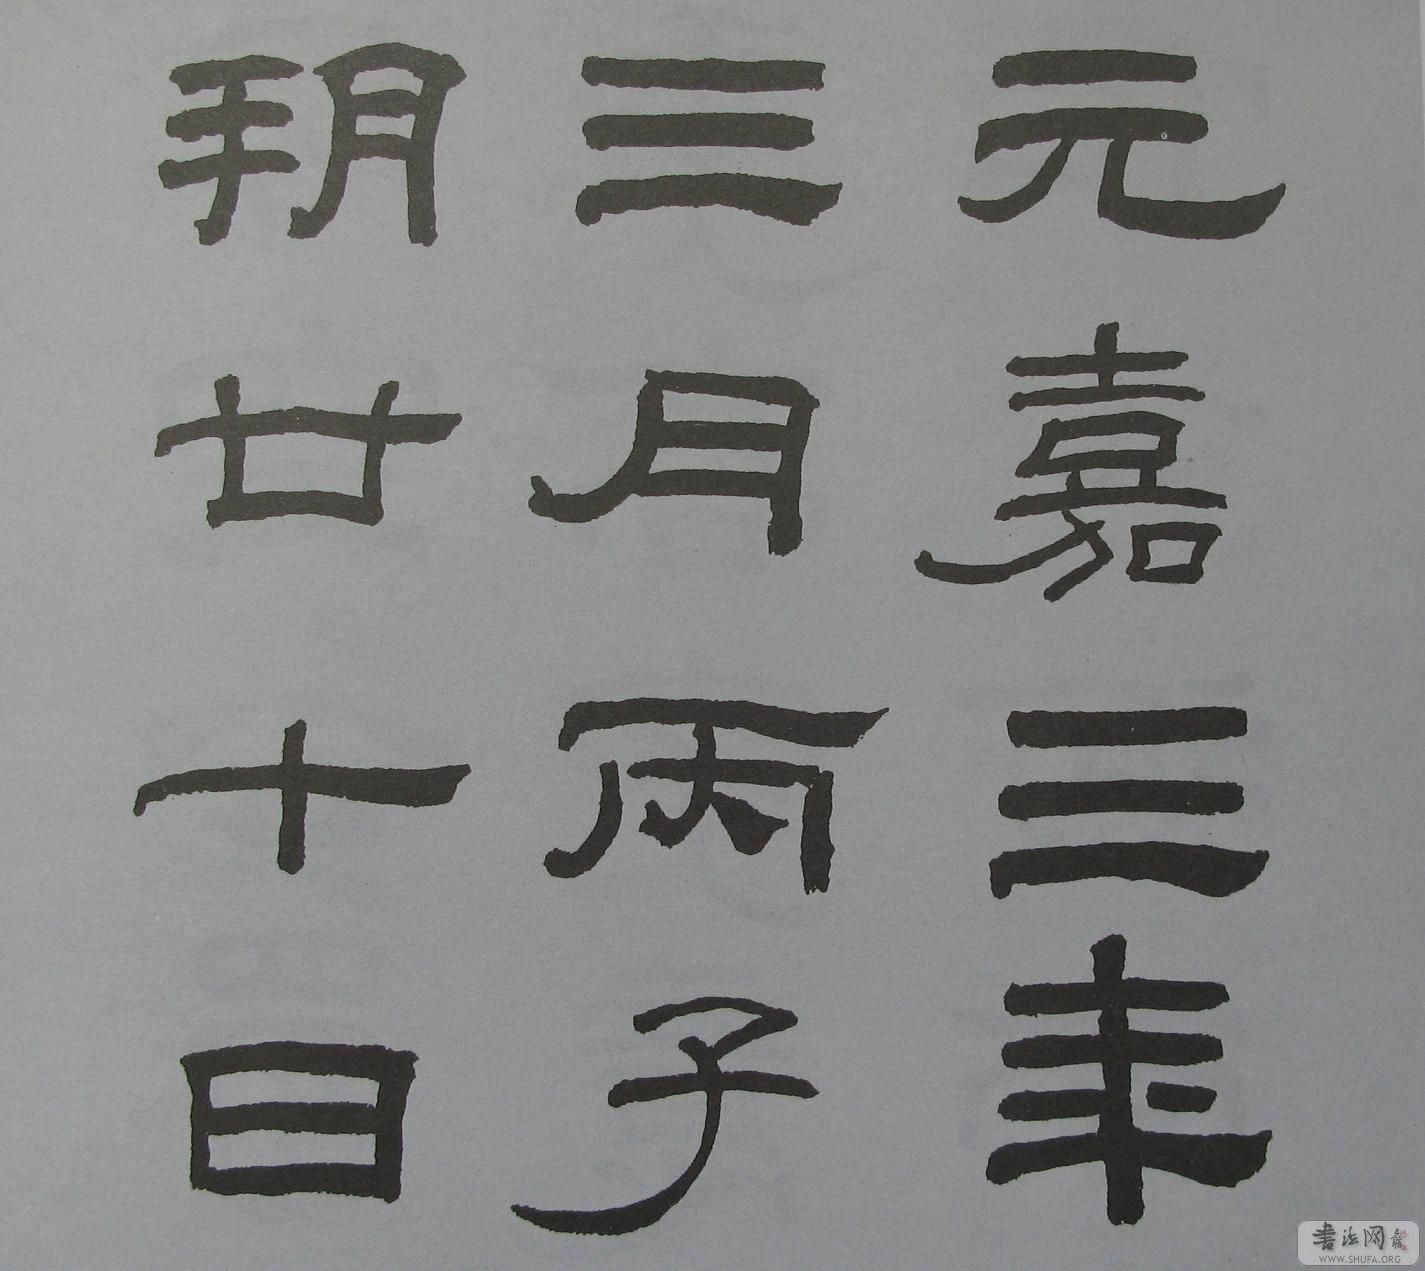 元嘉三年
三月丙子
朔廿十日
书法网
WWW.SHUFA.ORG